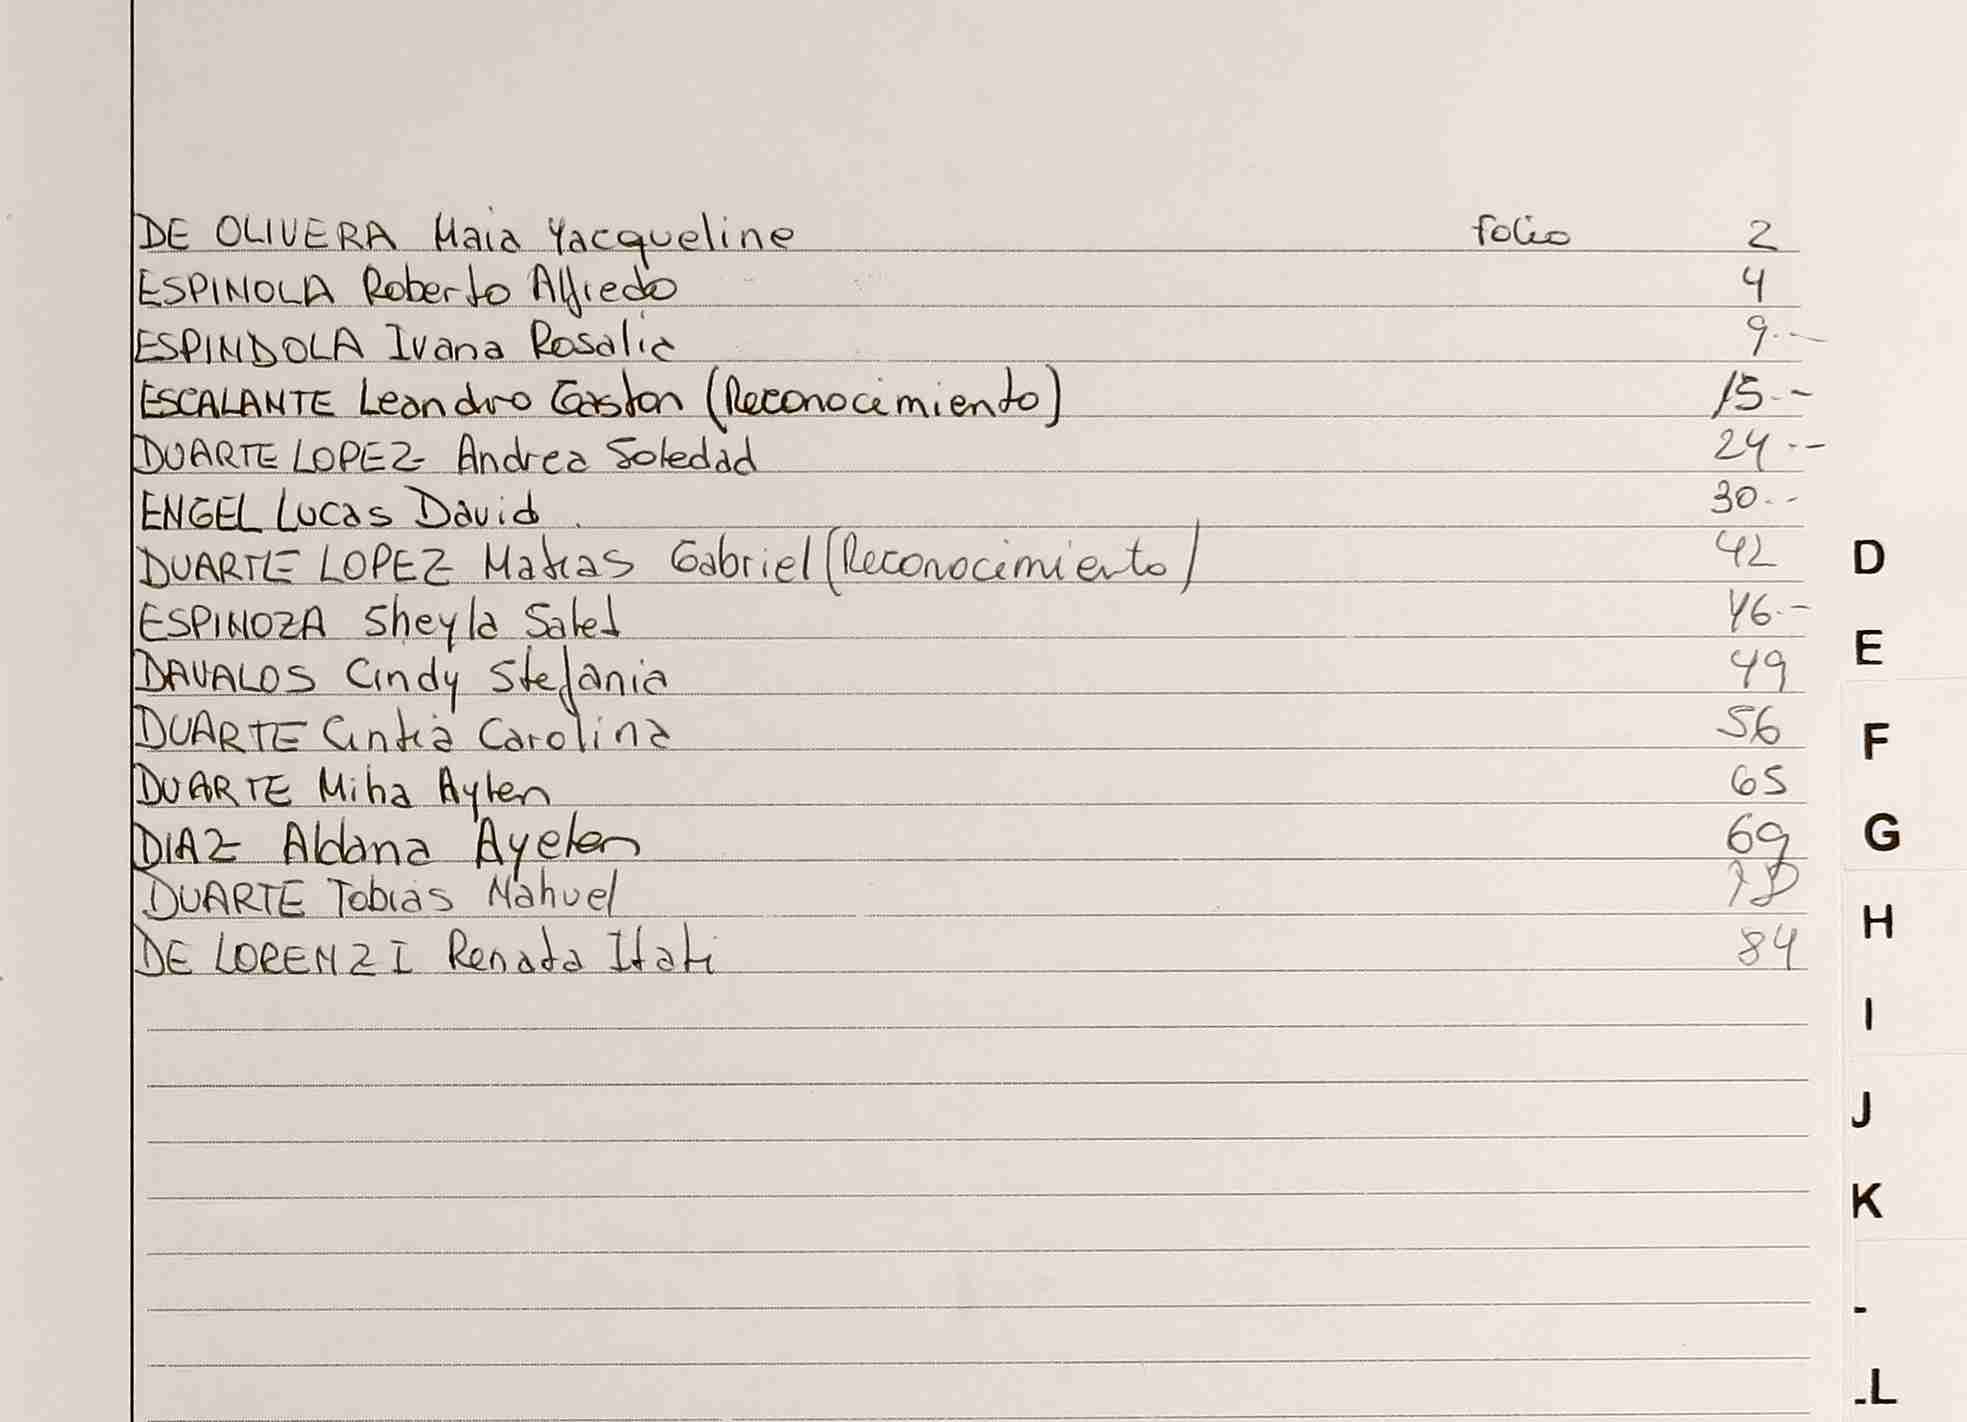 DE OLIVERA Maia Yacqueline folio 2
ESPINOLA Roberto Alfredo 4
ESPINDOLA Ivana Rosalia 9.-
ESCALANTE Leandro Gaston (Reconocimiento) 15.-
DUARTE LOPEZ Andrea Soledad 24.-
ENGEL Lucas David 30.-
DUARTE LOPEZ Matias Gabriel (Reconocimiento) 42
ESPINOZA Sheyla 46.-
DAVALOS Cindy Stefania 49
DUARTE Cintia Carolina 56
DUARTE Aylen 65
DIAZ Aldana Ayelen 69
DUARTE Tobias Nahuel
DE LORENZI Renata Itati 84
D
E
F
G
H
I
J
K
-
-L